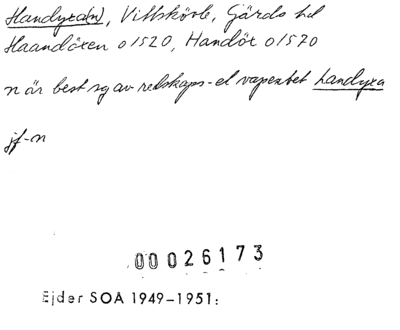 Handyxa(n), Vittskövle, Gärds hd
Haandöxen o 1520, Handöx o 1570
n är best sg av redskaps- el vapenbet handyxa
jf-n
00026173
Ejder SOA 1949-1951: